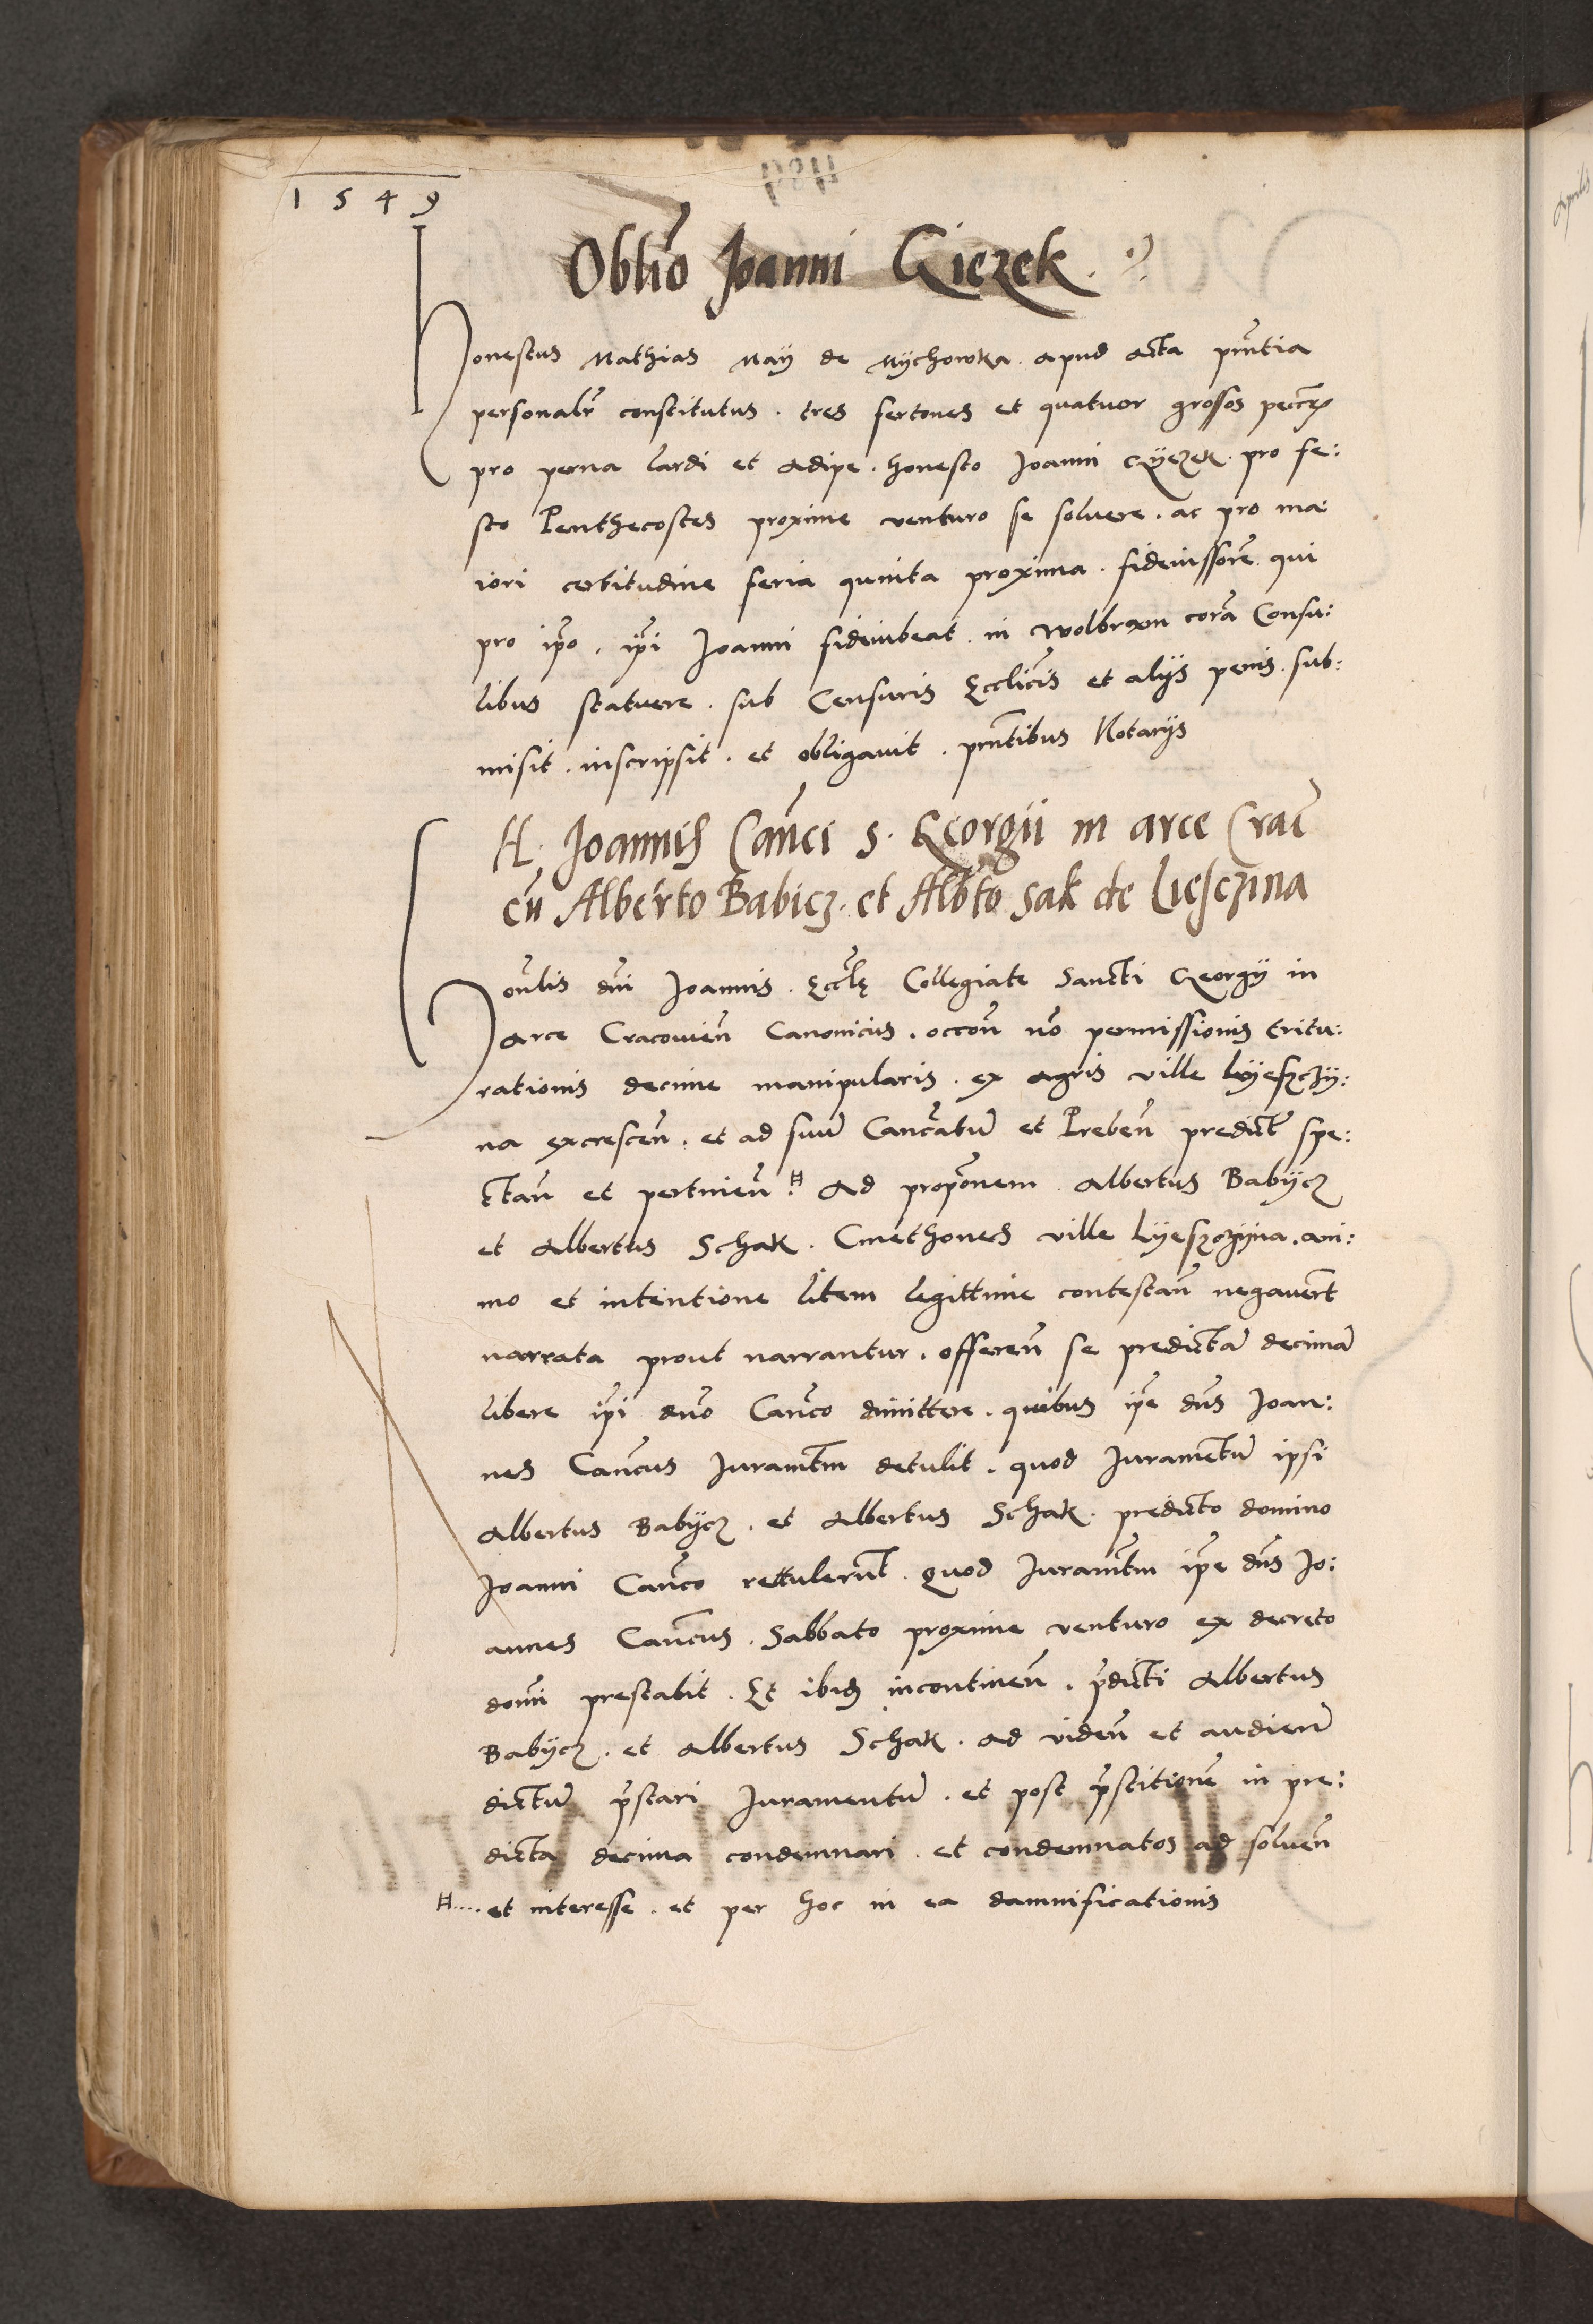 1549
Oblīo Joanni Giezek
Honestus Mathias May de Mychowka. apud acta pn̄tia
personalr̄ constitutus. tres fertones et quatuor grossos pecūe
pro perna lardi et adipe. honesto Joanni Gyezek. pro fe:
sto Penthecostes proxime venturo se soluere. ac pro ma:
iori certitudine feria quinta proxima. fideiussorē qui
pro ip̄o. ip̄i Joanni fideiubeat. in Wolbram corā Consu:
libus statuere. sub Censuris Eccl̄icis et alijs penis. sub:
misit. inscripsit. et obligauit. pn̄tibus Notarijs
H. Joannis Can̄ci S. Georgii in arce Crac̄
cū Alberto Babicz. et Alb̄to Sak de Liesczina
Hon̄lis dn̄i Joannis. Eccl̄ę Collegiate Sancti Georgij in
arce Cracouien̄ Canonicus. occōn nō permissionis tritu:
rationis decime manipularis. ex agris ville Lyesczÿ:
na excrescen̄. et ad suū Canc̄atū et Preben̄ predict̄ spe:
ctan̄ et pertinen̄ # Ad propōnem. Albertus Babÿcz
et Albertus Schak. Cmethones ville Lÿesczÿna. ani:
mo et intentione litem legittime contestan̄ negauer̄t
narrata prout narrantur. offeren̄ se predictā decimā
libere ip̄i dn̄o Can̄co dimittere. quibus ip̄e dn̄s Joan:
nes Can̄cus Juram̄tm detulit. quod Juramentū ipsi
Albertus Babÿcz. et Albertus Schak. predicto domino
Joanni Can̄co rettulerūt. Quod Juram̄tm ip̄e dn̄s Jo:
annes Can̄cus. Sabbato proxime venturo ex decreto
dom̄i prestabit. Et ibid̄ incontinen̄. p̄dicti Albertus
Babÿcz. et Albertus Schak. ad viden̄ et audien̄
dictū p̄stari Juramentū. et post p̄stitionē in pre:
dicta decima condemnari. et condemnatos ad soluen̄
#.... et interesse. et per hoc in ea damnificationis